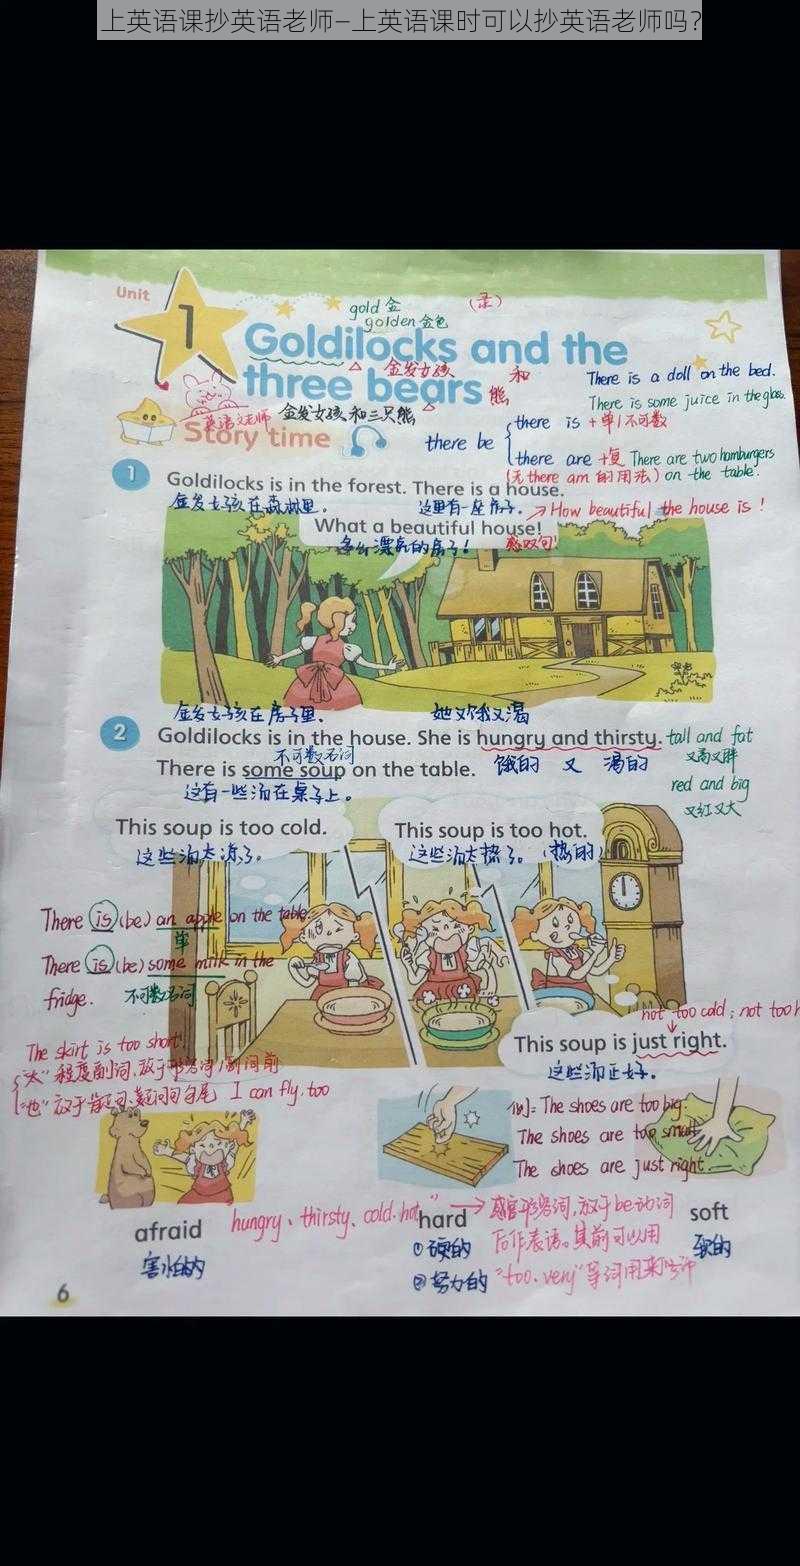 上英语课抄英语老师—上英语课时可以抄英语老师吗?
Unit
1
gold 金
golden 金色
Goldilocks and the
金发女孩
和
three bears
熊
There is a doll on the bed.
There is some juice in the glass.
金发女孩和三只熊
Story time
there be
there is +单/不可数
there are +复 There are two hamburgers
(无 there am 的用法) on the table.
1
Goldilocks is in the forest. There is a house.
金发女孩在森林里。
这里有一座房子。
How beautiful the house is!
What a beautiful house!
多么漂亮的房子!
感叹句!
金发女孩在房子里.
她又饿又渴
2
Goldilocks is in the house. She is hungry and thirsty.
tall and fat
又高又胖
不可数名词
There is some soup on the table.
饿的 又 渴的
red and big
又红又大
这有一些汤在桌子上。
This soup is too cold.
这些汤太凉了。
This soup is too hot.
这些汤太热了。(热的)
There is (be) an apple on the table.
单
There is (be) some milk in the
fridge. 不可数名词
not too cold; not too h
This soup is just right.
这些汤正好。
The skirt is too short!
"太" 程度副词,放于形容词/副词前
"也" 放于肯定句、疑问句句尾 I can fly, too
例: The shoes are too big.
The shoes are too small.
The shoes are just right.
afraid
害怕的
hungry、thirsty、cold、hot"
hard
①硬的
②努力的
soft
软的
感官形容词,放于be动词
后作表语。其前可以用
"too、very"等词用来
6